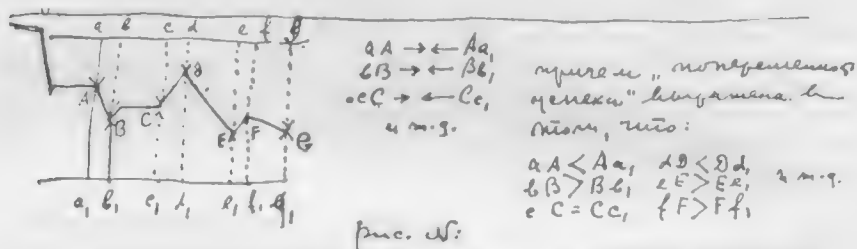 a b c d e f g
A B C D E F G
a₁ b₁ c₁ d₁ e₁ f₁ g₁
aA → ← Aa₁
bB → ← Bb₁
cC → ← Cc₁
и т.д.
причем „попеременность
успеха" выражена в
том, что:
aA < Aa₁ dD < Dd₁
bB > Bb₁ eE > Ee₁ и т.д.
cC = Cc₁ fF > Ff₁
рис. №: